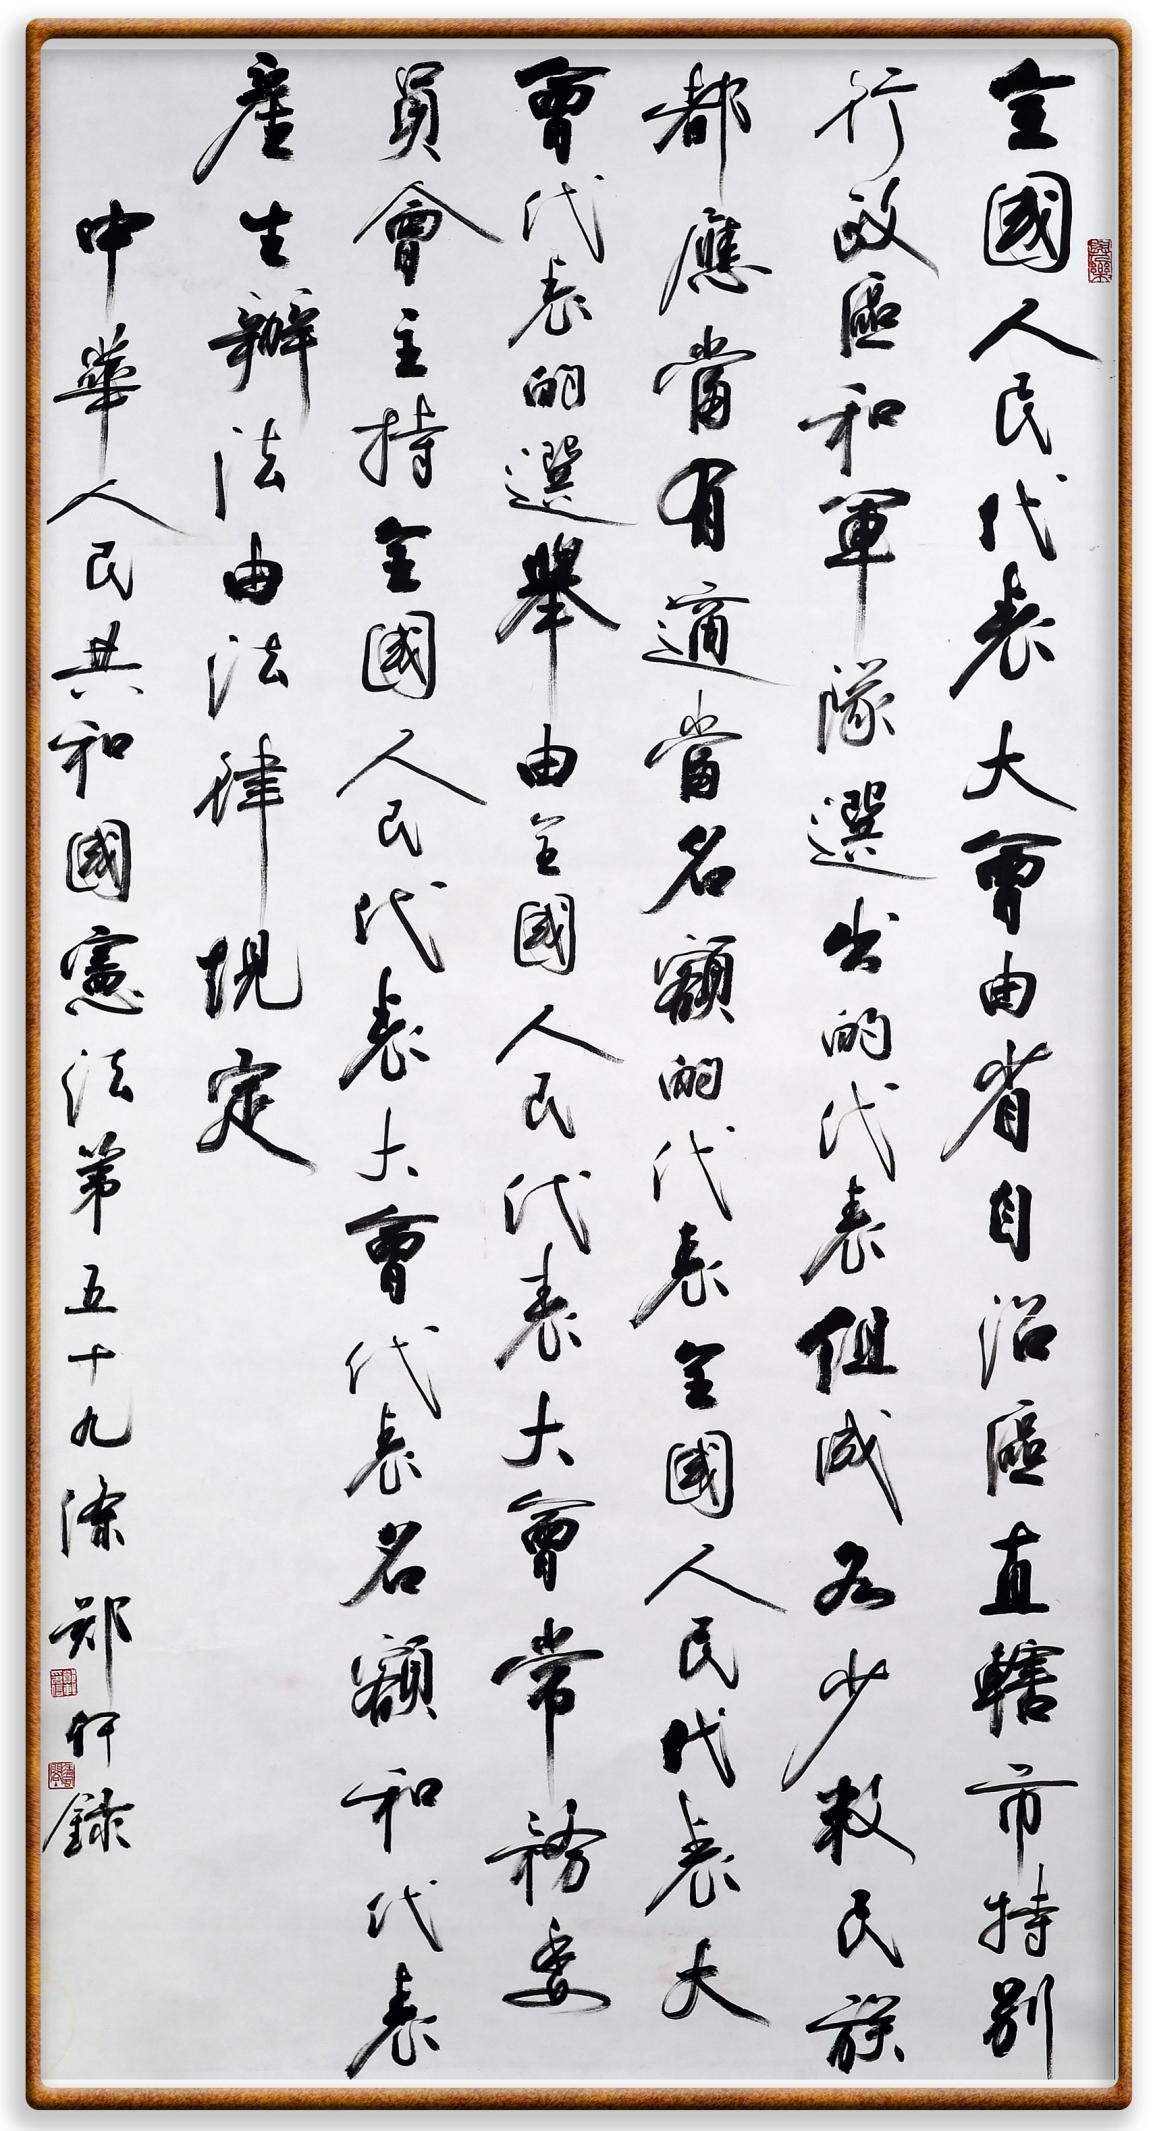 全國人民代表大會由省自治區直轄市特別
行政區和軍隊選出的代表組成各少数民族
都應當有適當名額的代表全國人民代表大
會代表的選舉由全國人民代表大會常務委
員會主持全國人民代表大會代表名額和代表
產生辦法由法律規定
中華人民共和國憲法第五十九條 鄭何錄